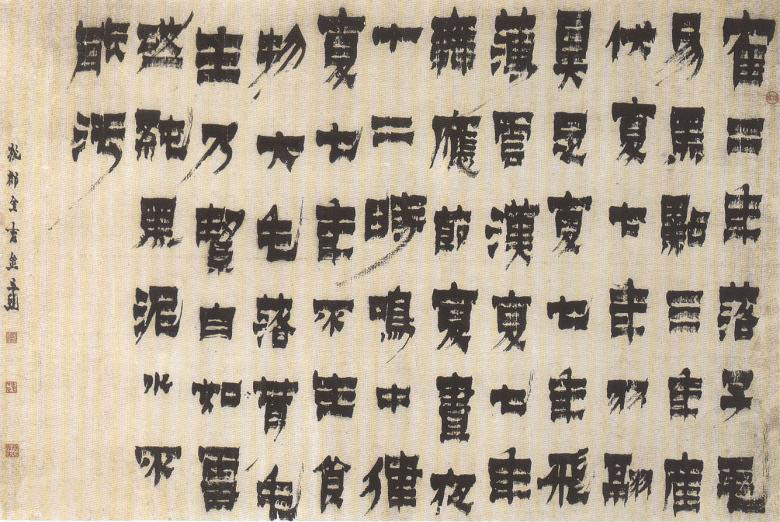 寉二年落子毛
易黑點三年產
伏夏七年羽翮
具足夏七年飛
薄雲漢夏七年
舞應節夏晝夜
十二時鳴中律
夏七年不生食
物大毛落茸毛
生乃白如雪
純黑泥水不
能污
杭郡金吉金